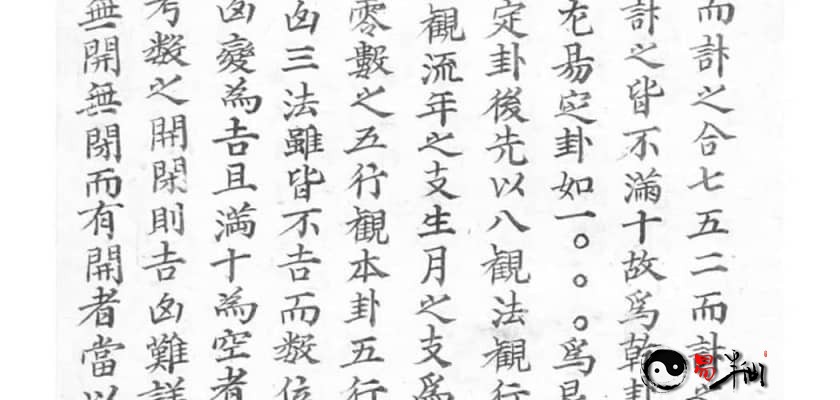 而計之合七五二而計之
計之皆不滿十故爲乾卦
尤易定卦如一。。。爲
定卦後先以八觀法觀行
觀流年之支生月之支爲
零數之五行觀本卦五行
凶三法雖皆不吉而数位
凶變為吉且滿十為空者
考数之開閉則吉凶難詳
無開無閉而有開者當以
易半仙